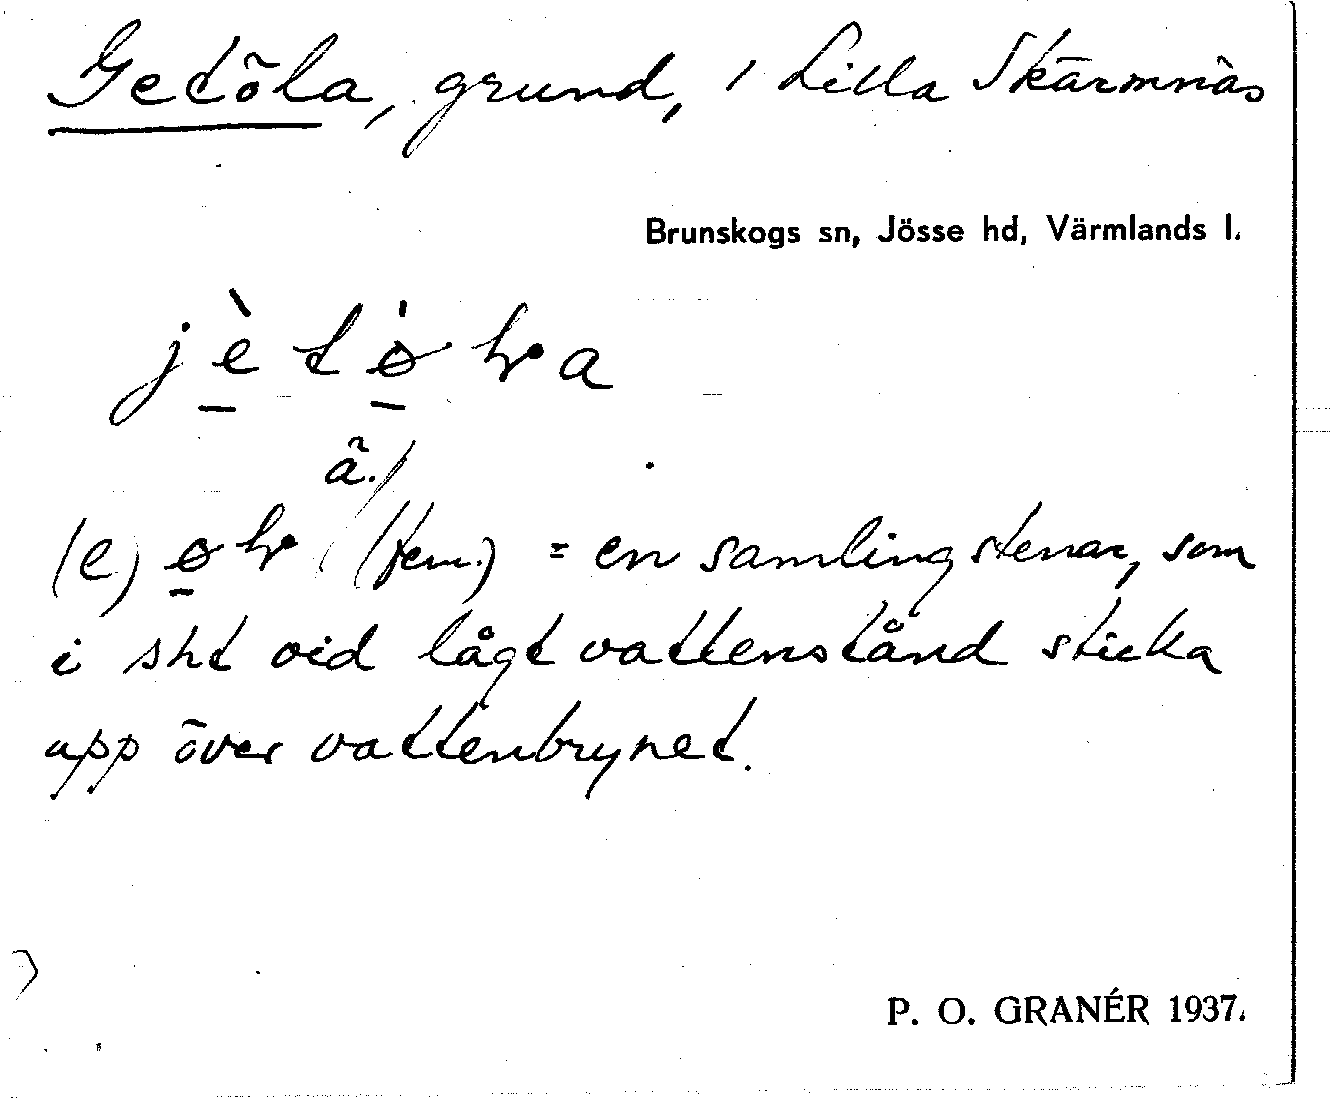 Getöla, grund, i Lilla Skärmnäs
Brunskogs sn, Jösse hd, Värmlands l.
ä.
(e) (fem.) = en samling stenar, som
i sht vid lågt vattenstånd sticka
upp över vattenbrynet.
P. O. GRANÉR 1937.